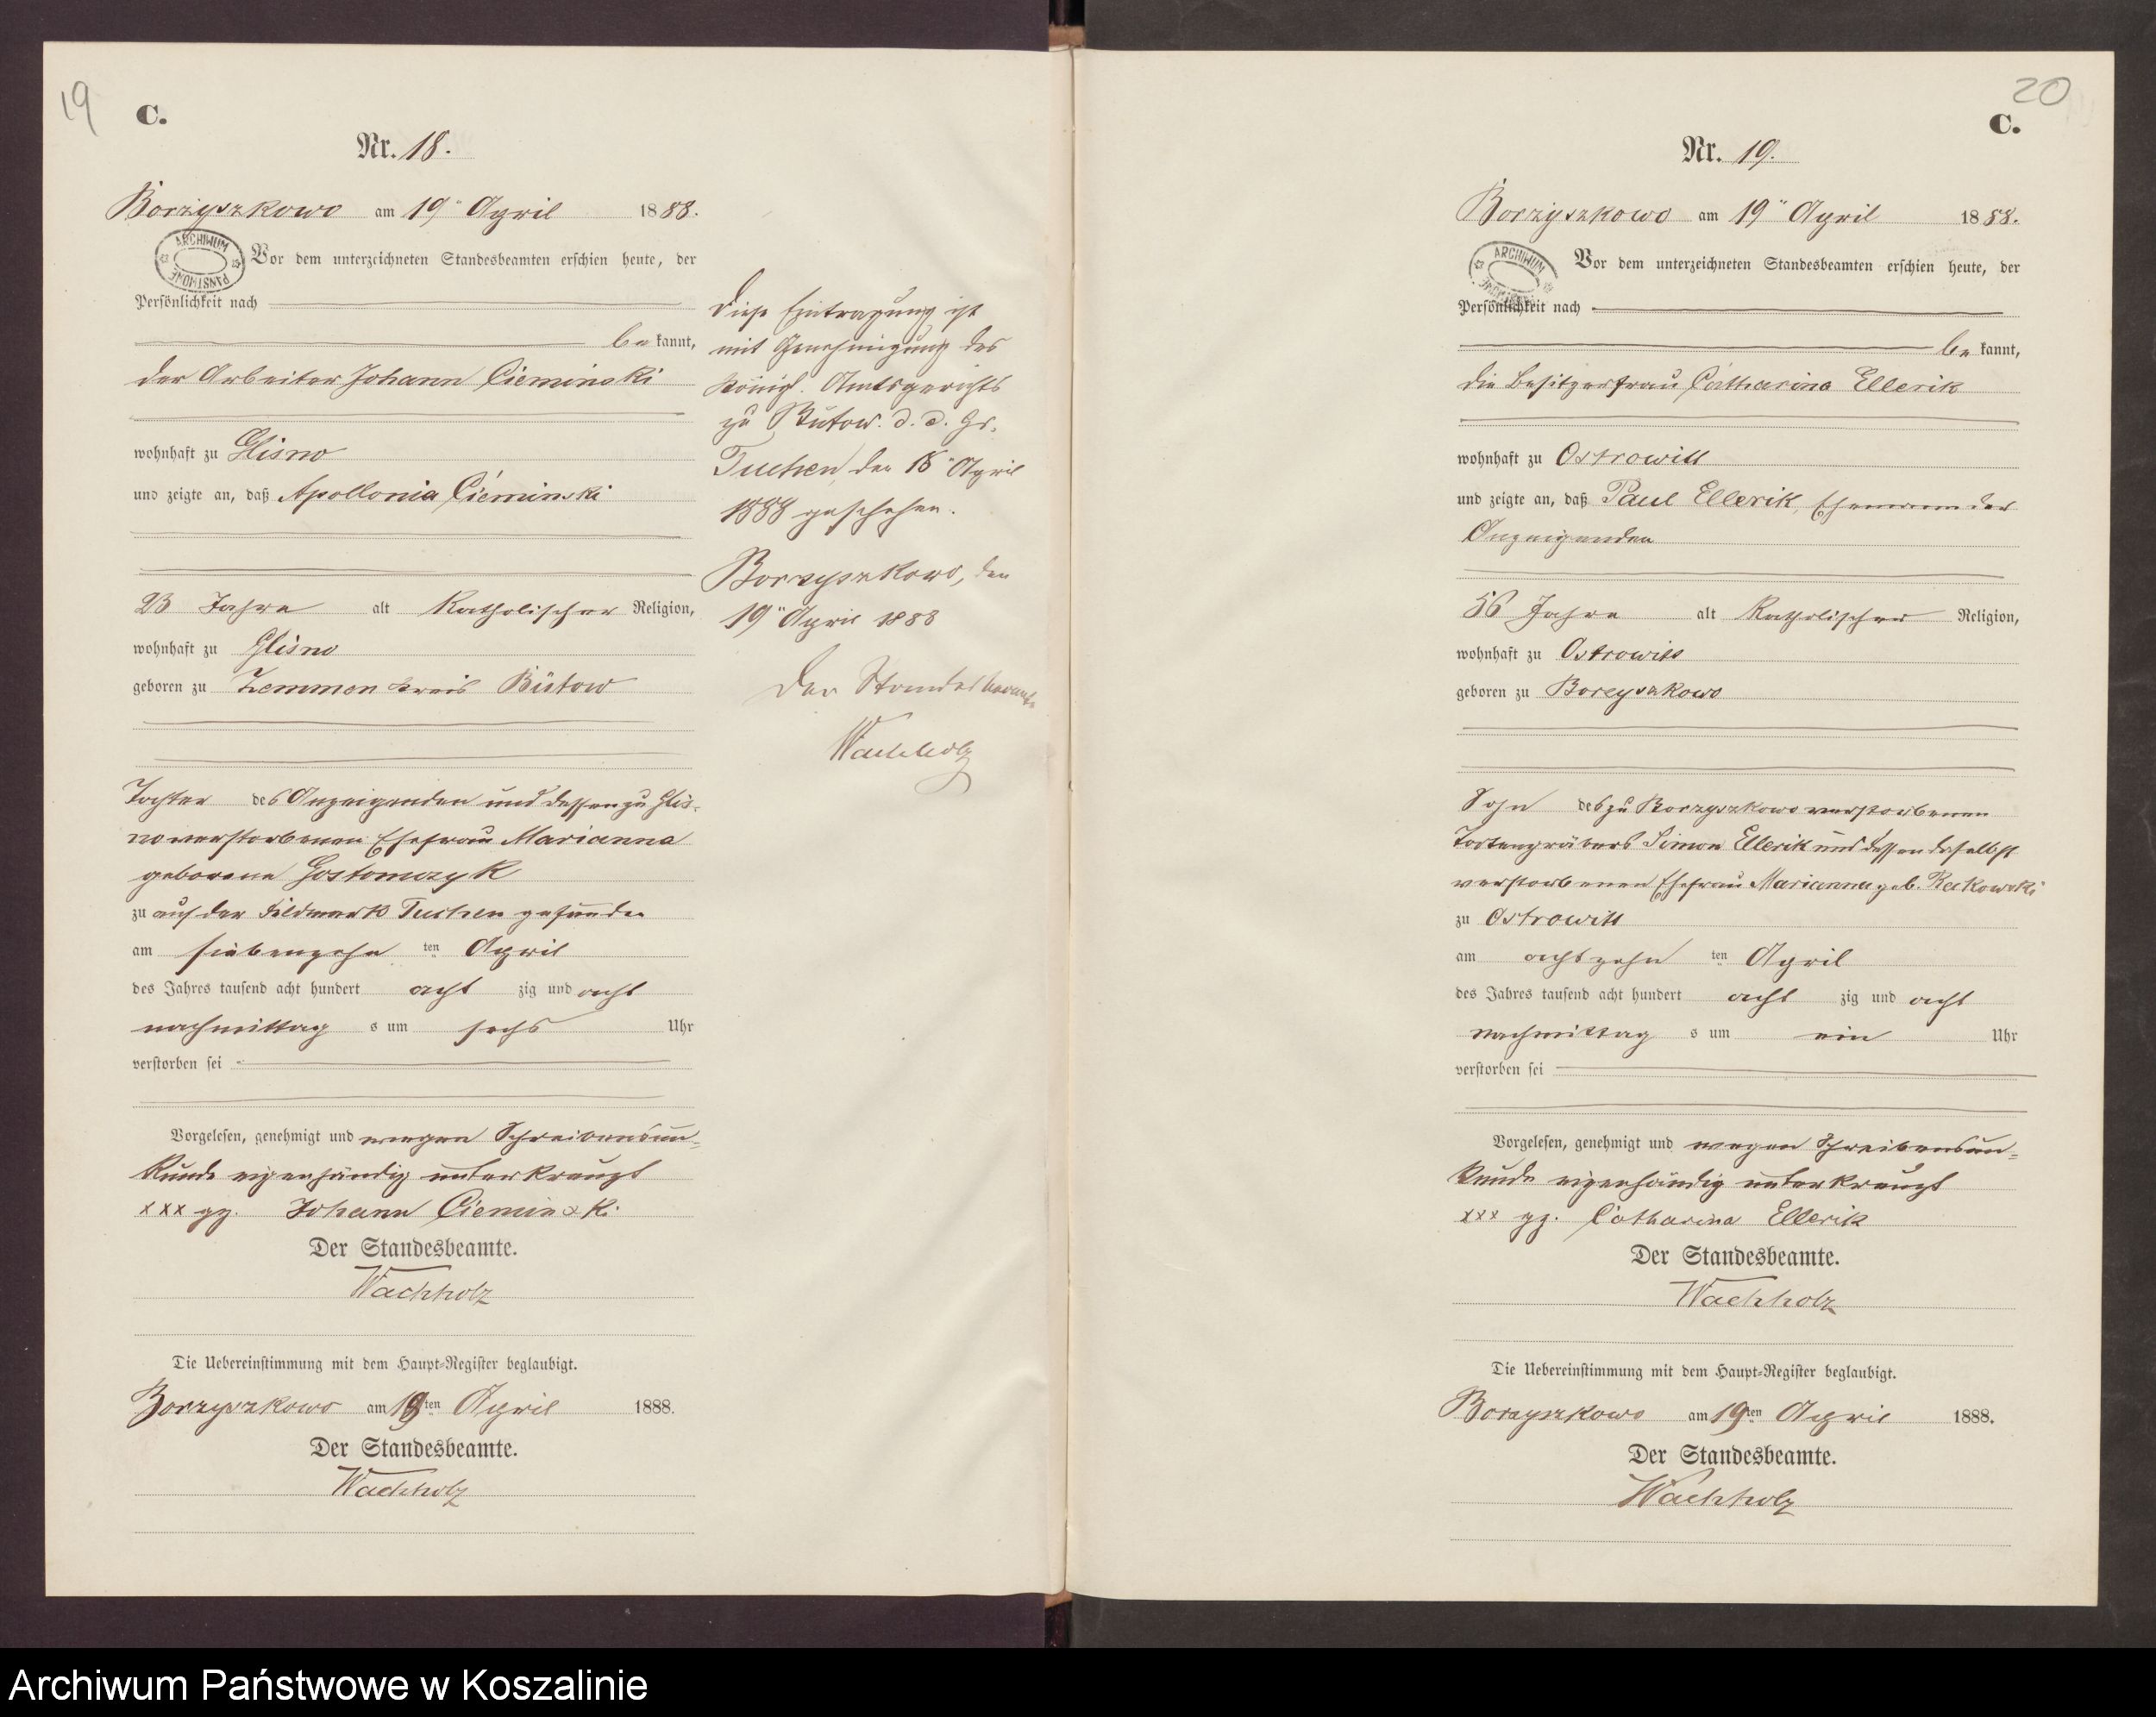 19
C.
Nr. 18.
Borzyszkowo am 19" April 1888.
ARCHIWUM PAŃSTWOWE
Vor dem unterzeichneten Standesbeamten erschien heute, der
Persönlichkeit nach
be kannt,
der Arbeiter Johann Cieminski
wohnhaft zu Glisno
und zeigte an, daß Apollonia Cieminski
23 Jahre alt katholischer Religion,
wohnhaft zu Glisno
geboren zu Zemmen Kreis Bütow
Tochter des Anzeigenden und dessen zu Glis-
no verstorbenen Ehefrau Marianna
geborene Gostomczyk
zu auf der Feldmark Tuchen gefunden
am siebenzehn ten April
des Jahres tausend acht hundert acht zig und acht
nachmittag s um sechs Uhr
verstorben sei
Vorgelesen, genehmigt und wegen Schreibensun-
kunde eigenhändig unterkreuzt
xxx gz. Johann Cieminski
Der Standesbeamte.
Wachholz
Die Uebereinstimmung mit dem Haupt-Register beglaubigt.
Borzyszkowo am 19ten April 1888.
Der Standesbeamte.
Wachholz
Diese Eintragung ist
mit Genehmigung des
Königl. Amtsgerichts
zu Bütow. d. d. Gr.
Tuchen, den 18" April
1888 geschehen.
Borzyszkowo, den
19" April 1888
Der Standesbeamte
Wachholz
20
C.
Nr. 19.
Borzyszkowo am 19" April 1888.
ARCHIWUM
Vor dem unterzeichneten Standesbeamten erschien heute, der
Persönlichkeit nach
be kannt,
die Besitzerfrau Catharina Ellerik
wohnhaft zu Ostrowitt
und zeigte an, daß Paul Ellerik, Ehemann der
Anzeigenden
56 Jahre alt katholischer Religion,
wohnhaft zu Ostrowitt
geboren zu Borzyszkowo
Sohn des zu Borzyszkowo verstorbenen
Todtengräbers Simon Ellerik und dessen daselbst
verstorbenen Ehefrau Marianna geb. Reckowski
zu Ostrowitt
am achtzehn ten April
des Jahres tausend acht hundert acht zig und acht
nachmittag s um ein Uhr
verstorben sei
Vorgelesen, genehmigt und wegen Schreibensun-
kunde eigenhändig unterkreuzt
xxx gz. Catharina Ellerik
Der Standesbeamte.
Wachholz
Die Uebereinstimmung mit dem Haupt-Register beglaubigt.
Borzyszkowo am 19ten April 1888.
Der Standesbeamte.
Wachholz
Archiwum Państwowe w Koszalinie